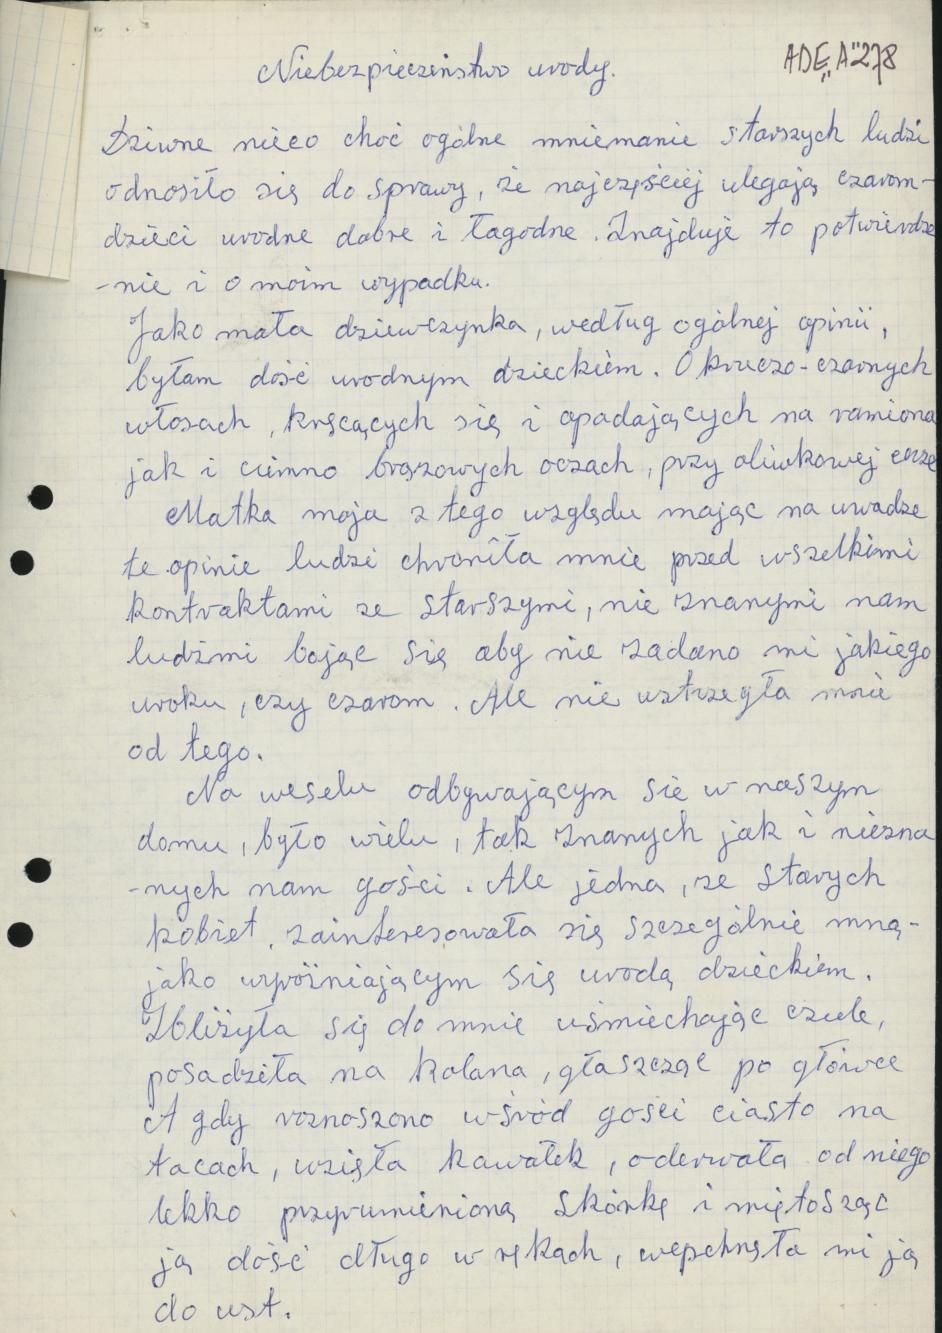 Niebezpieczeństwo urody.
ADE „A" 278
Dziwne nieco choć ogólne mniemanie starszych ludzi
odnosiło się do sprawy, że najczęściej ulegają czarom-
dzieci urodne dobre i łagodne. Znajduje to potwierdze
-nie i o moim wypadku.
Jako mała dziewczynka, według ogólnej opinii,
byłam dość urodnym dzieckiem. O kruczo-czarnych
włosach, kręcących się i opadających na ramiona
jak i ciemno brązowych oczach, przy oliwkowej cerze
Matka moja z tego względu mając na uwadze
te opinie ludzi chroniła mnie przed wszelkimi
kontraktami ze starszymi, nie znanymi nam
ludźmi bojąc się aby nie zadano mi jakiego
uroku, czy czarom. Ale nie ustrzegła mnie
od tego.
Na weselu odbywającym sie w naszym
domu, było wielu, tak znanych jak i niezna
-nych nam gości. Ale jedna, ze starych
kobiet, zainteresowała się szczególnie mną-
jako wyróżniającym się urodą dzieckiem.
Zbliżyła się do mnie uśmiechając czule,
posadziła na kolana, głaszcząc po główce
A gdy roznoszono wśród gości ciasto na
tacach, wzięła kawałek, oderwała od niego
lekko przyrumienioną skórkę i miętosząc
ją dość długo w rękach, wepchnęła mi ją
do ust.